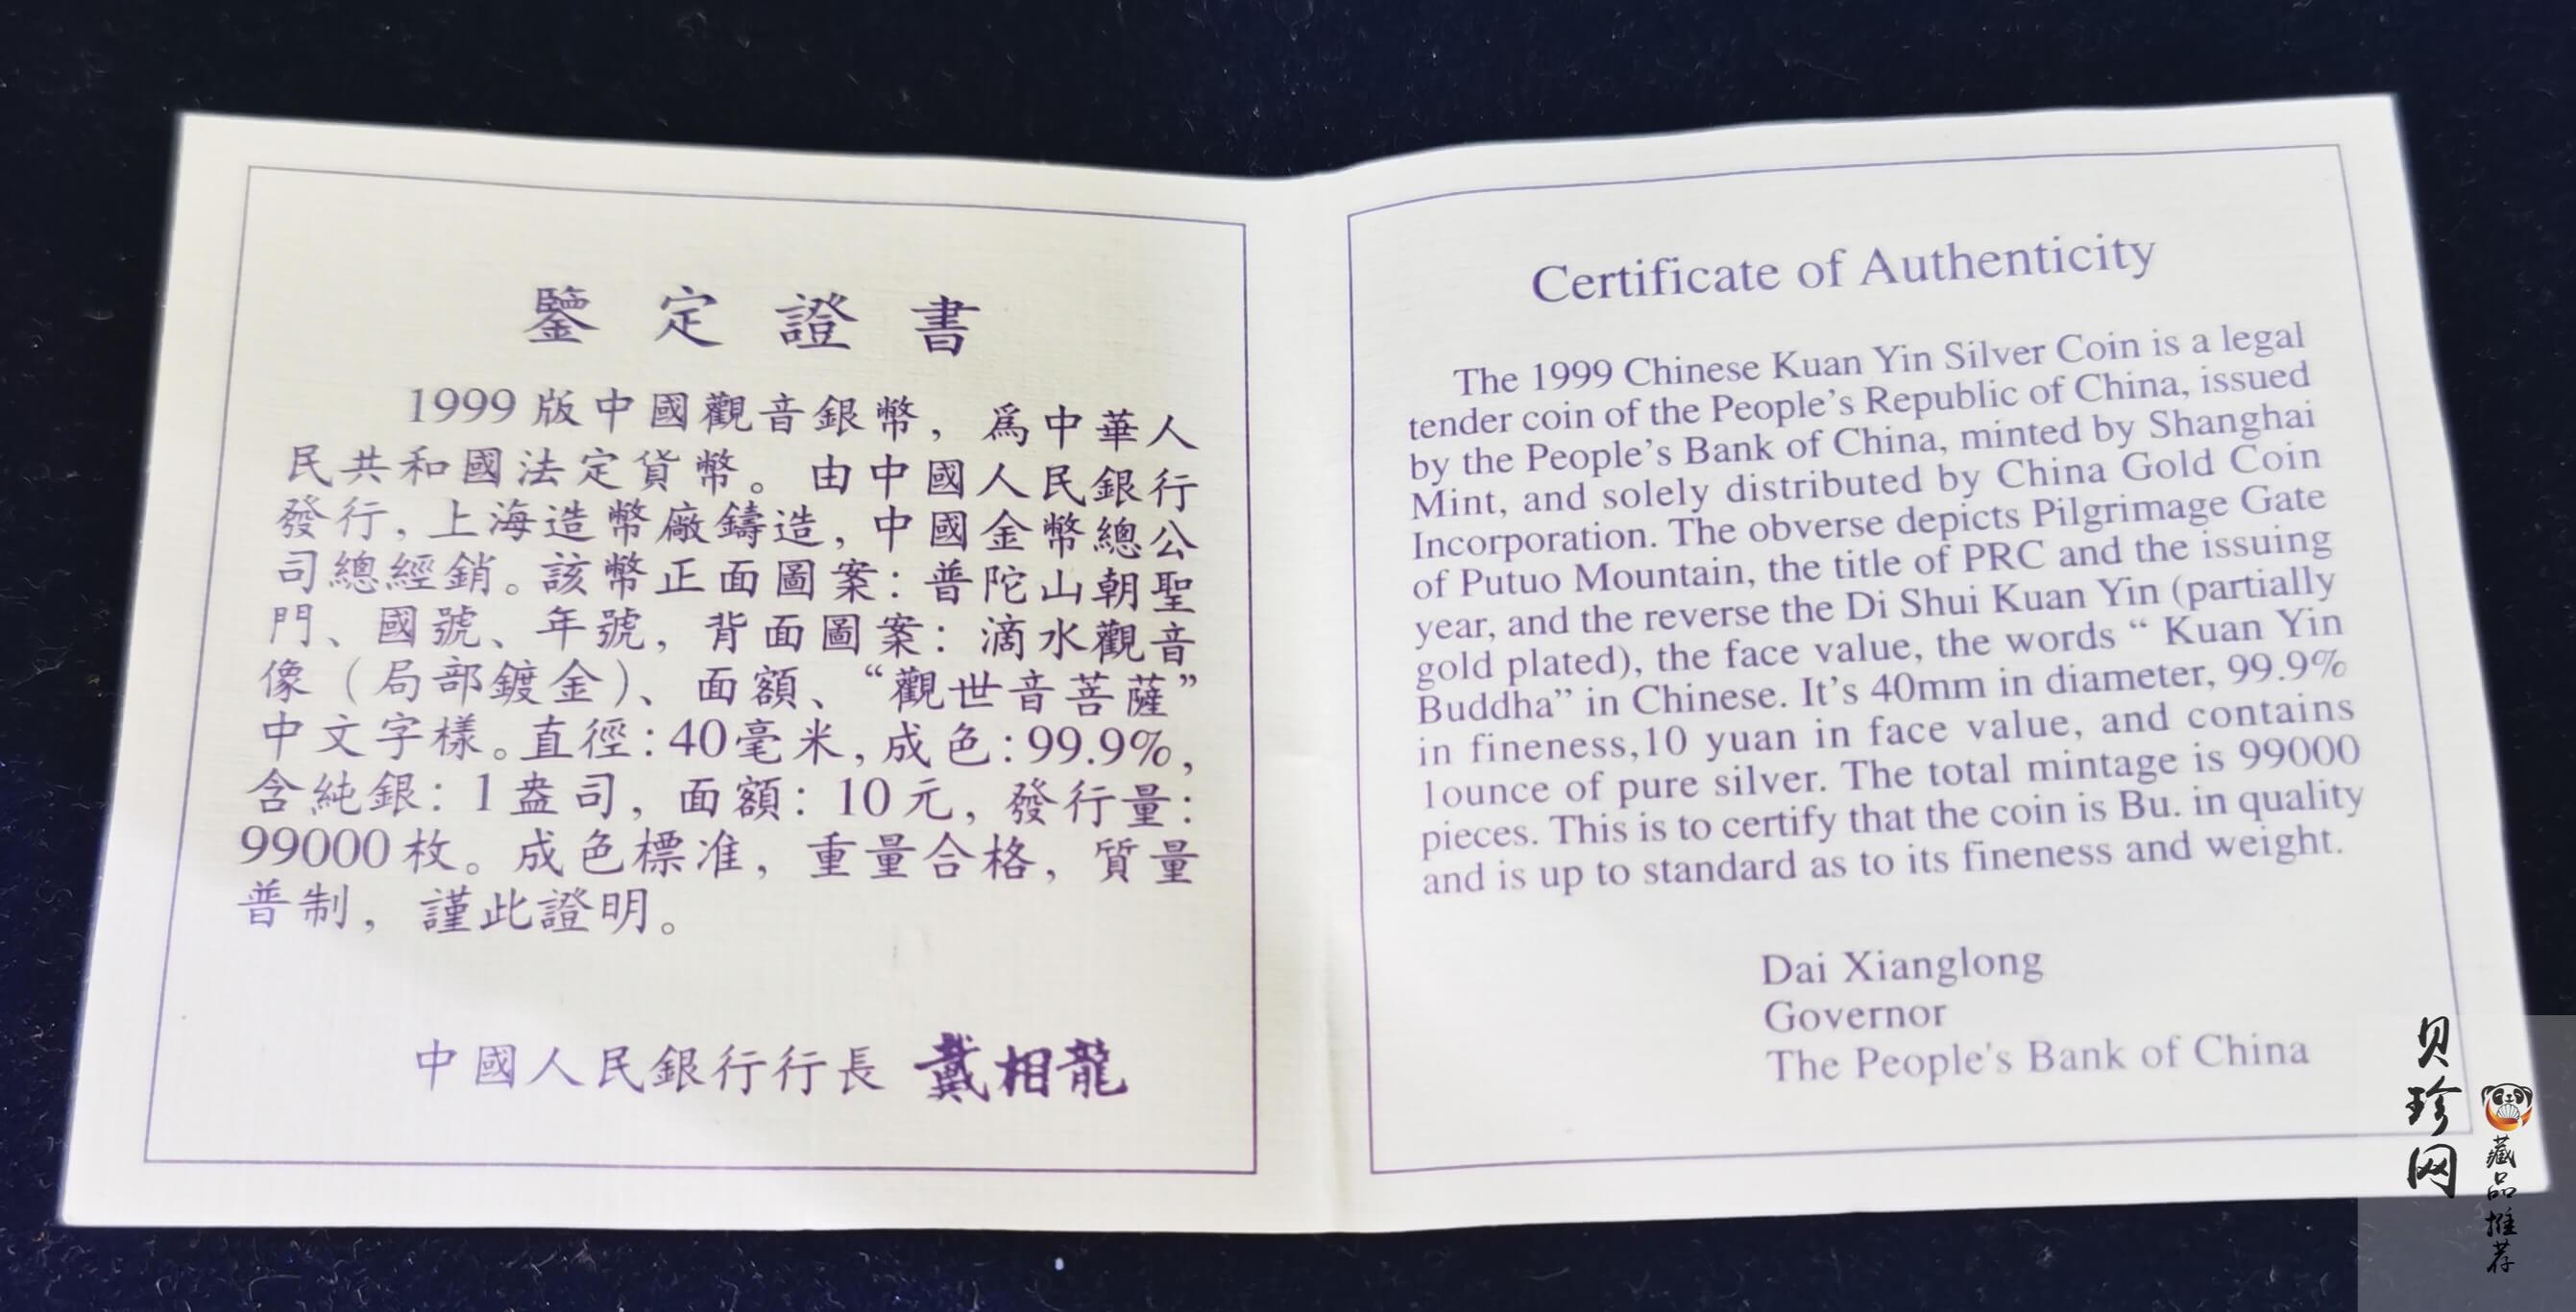 鑒定證書
1999版中國觀音銀幣，爲中華人
民共和國法定貨幣。由中國人民銀行
發行，上海造幣廠鑄造，中國金幣總公
司總經銷。該幣正面圖案：普陀山朝聖
門、國號、年號，背面圖案：滴水觀音
像（局部鍍金）、面額、“觀世音菩薩”
中文字樣。直徑：40毫米，成色：99.9%，
含純銀：1盎司，面額：10元，發行量：
99000枚。成色標准，重量合格，質量
普制，謹此證明。
中國人民銀行行長 戴相龍
Certificate of Authenticity
The 1999 Chinese Kuan Yin Silver Coin is a legal
tender coin of the People's Republic of China, issued
by the People's Bank of China, minted by Shanghai
Mint, and solely distributed by China Gold Coin
Incorporation. The obverse depicts Pilgrimage Gate
of Putuo Mountain, the title of PRC and the issuing
year, and the reverse the Di Shui Kuan Yin (partially
gold plated), the face value, the words “ Kuan Yin
Buddha” in Chinese. It's 40mm in diameter, 99.9%
in fineness,10 yuan in face value, and contains
1ounce of pure silver. The total mintage is 99000
pieces. This is to certify that the coin is Bu. in quality
and is up to standard as to its fineness and weight.
Dai Xianglong
Governor
The People's Bank of China
贝珍网
藏品推荐